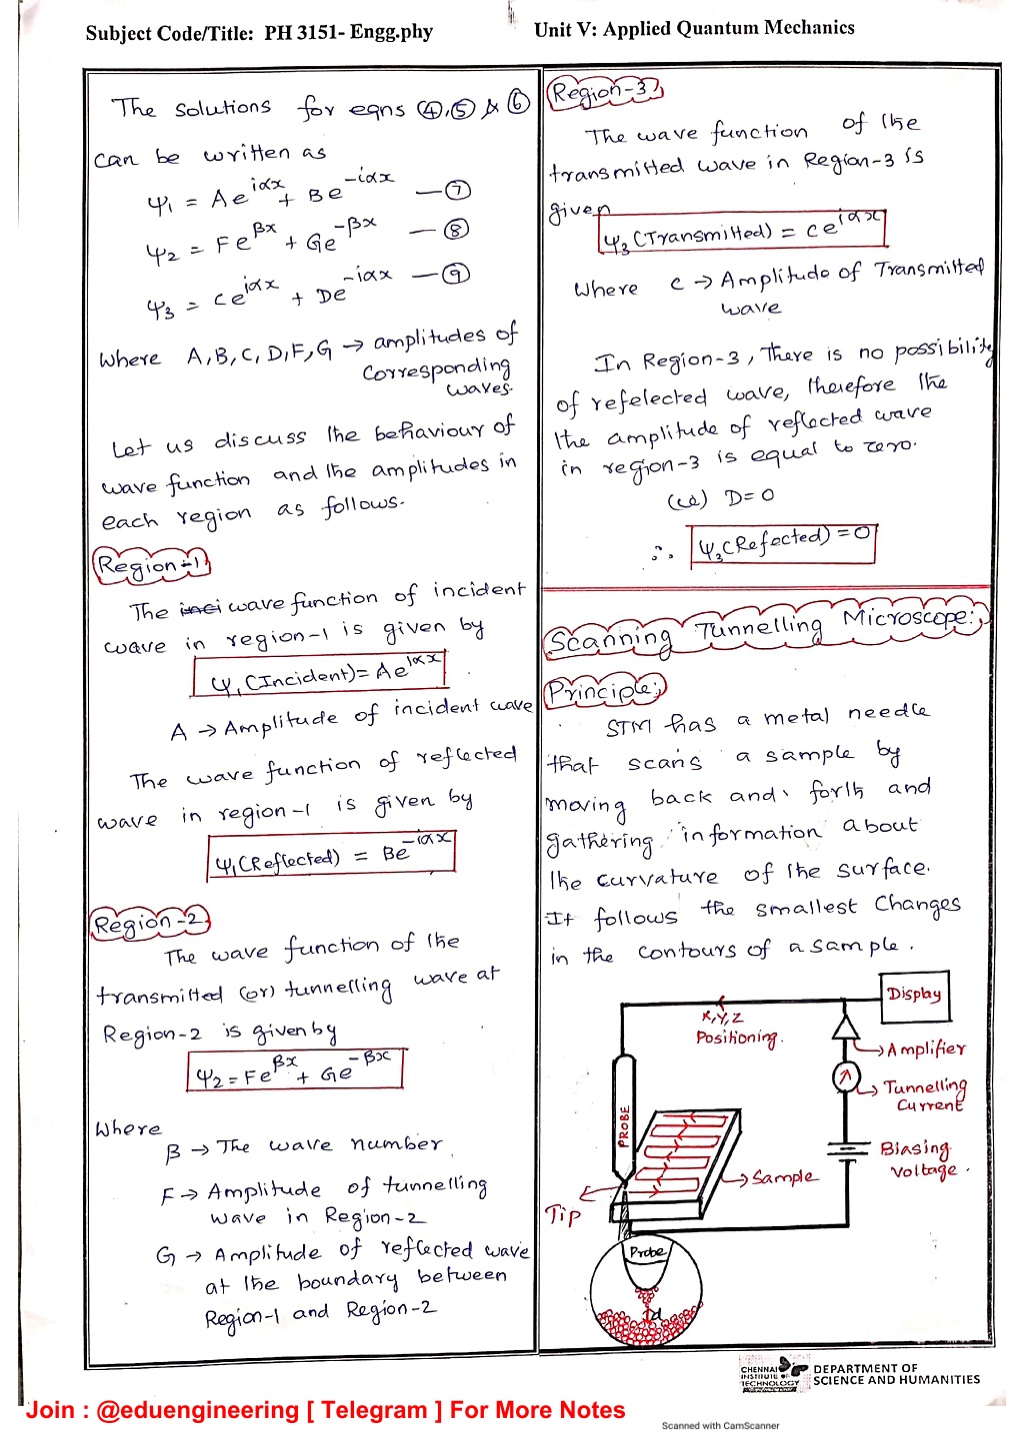 Subject Code/Title: PH 3151- Engg.phy
Unit V: Applied Quantum Mechanics
The solutions for eqns ④,⑤ & ⑥
can be written as
ψ₁ = Ae^{iαx} + Be^{-iαx} —⑦
ψ₂ = Fe^{βx} + Ge^{-βx} —⑧
ψ₃ = Ce^{iαx} + De^{-iαx} —⑨
Where A,B,C,D,F,G → amplitudes of
Corresponding
waves.
Let us discuss the behaviour of
wave function and the amplitudes in
each region as follows.
Region-1
The inci wave function of incident
wave in region-1 is given by
ψ₁(Incident) = Ae^{iαx}
A → Amplitude of incident wave
The wave function of reflected
wave in region-1 is given by
ψ₁(Reflected) = Be^{-iαx}
Region-2
The wave function of the
transmitted (or) tunnelling wave at
Region-2 is given by
ψ₂ = Fe^{βx} + Ge^{-βx}
Where
β → The wave number
F → Amplitude of tunnelling
wave in Region-2
G → Amplitude of reflected wave
at the boundary between
Region-1 and Region-2
Region-3
The wave function of the
transmitted wave in Region-3 is
given
ψ₃(Transmitted) = Ce^{iαx}
Where C → Amplitude of Transmitted
wave
In Region-3, There is no possibility
of refelected wave, therefore the
the amplitude of reflected wave
in region-3 is equal to zero.
(ie) D=0
∴ ψ₃(Refected) = 0
Scanning Tunnelling Microscope:
Principle:
STM has a metal needle
that scans a sample by
moving back and forth and
gathering information about
the curvature of the surface.
It follows the smallest Changes
in the contours of a sample.
Display
X,Y,Z
Positioning.
Amplifier
Tunnelling
Current
PROBE
Biasing
Voltage.
Sample
Tip
Probe
d
CHENNAI
INSTITUTE OF
TECHNOLOGY
DEPARTMENT OF
SCIENCE AND HUMANITIES
Join : @eduengineering [ Telegram ] For More Notes
Scanned with CamScanner